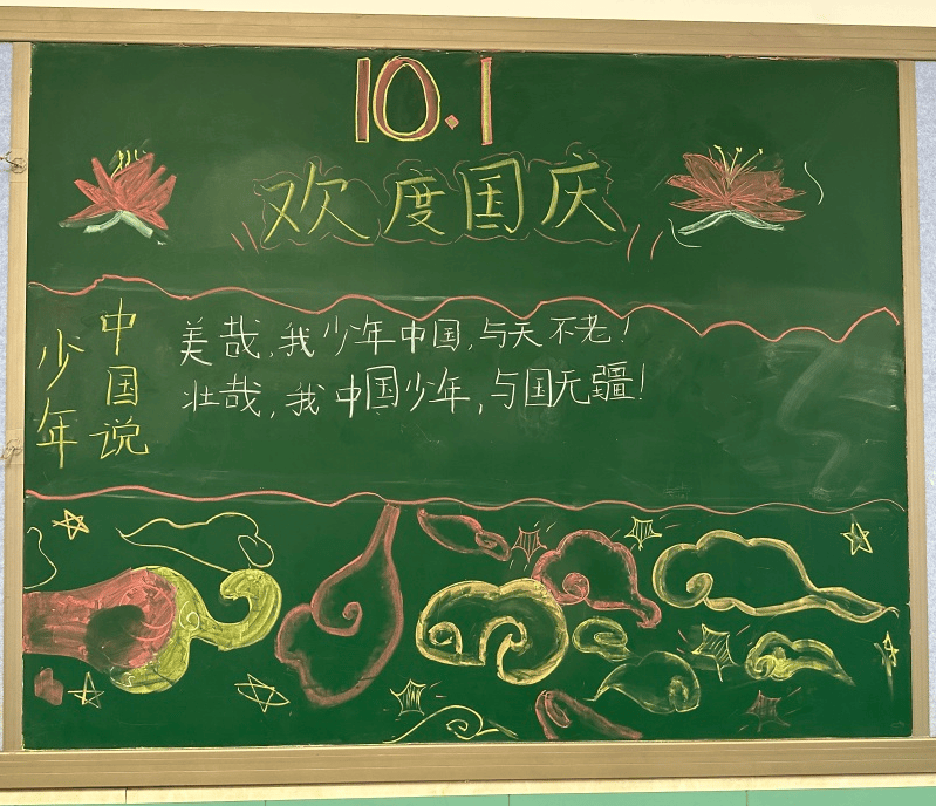 10.1
欢度国庆
少年
中国说
美哉,我少年中国,与天不老!
壮哉,我中国少年,与国无疆!